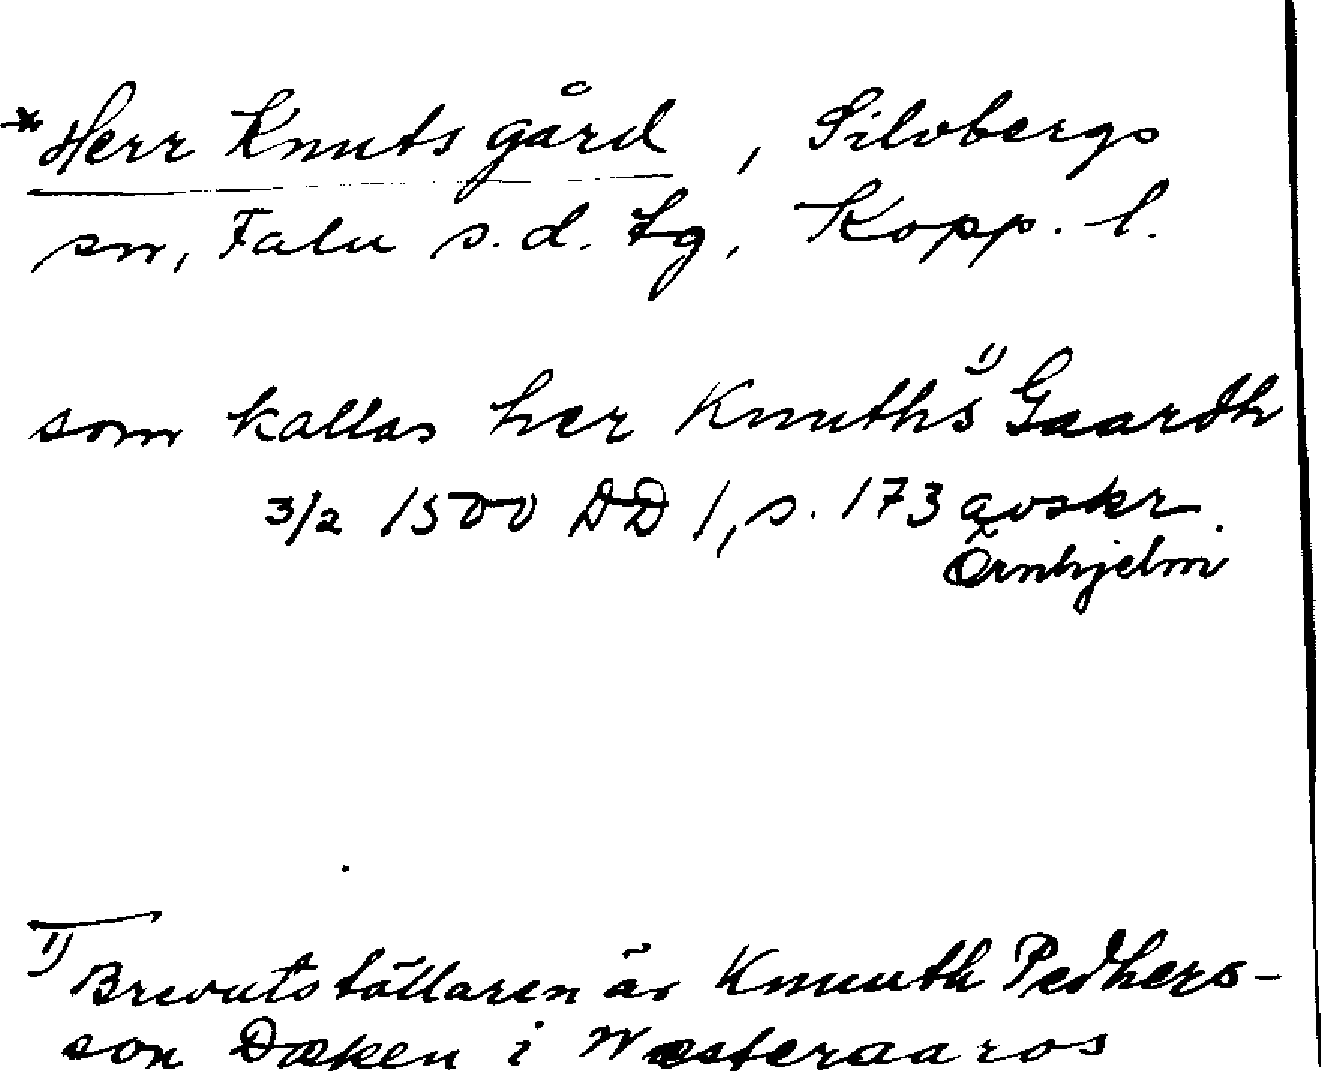 *Herr Knuts gård, Silvbergs
sn, Falu s.d. tg, Kopp. l.
som kallas her Knuths¹⁾ Gaardh
3/2 1500 DD 1, s. 173 avskr.
Örnhjelm
¹⁾ Brevutställaren är Knuuth Pedhers-
son Dæken i Wæsteraaros